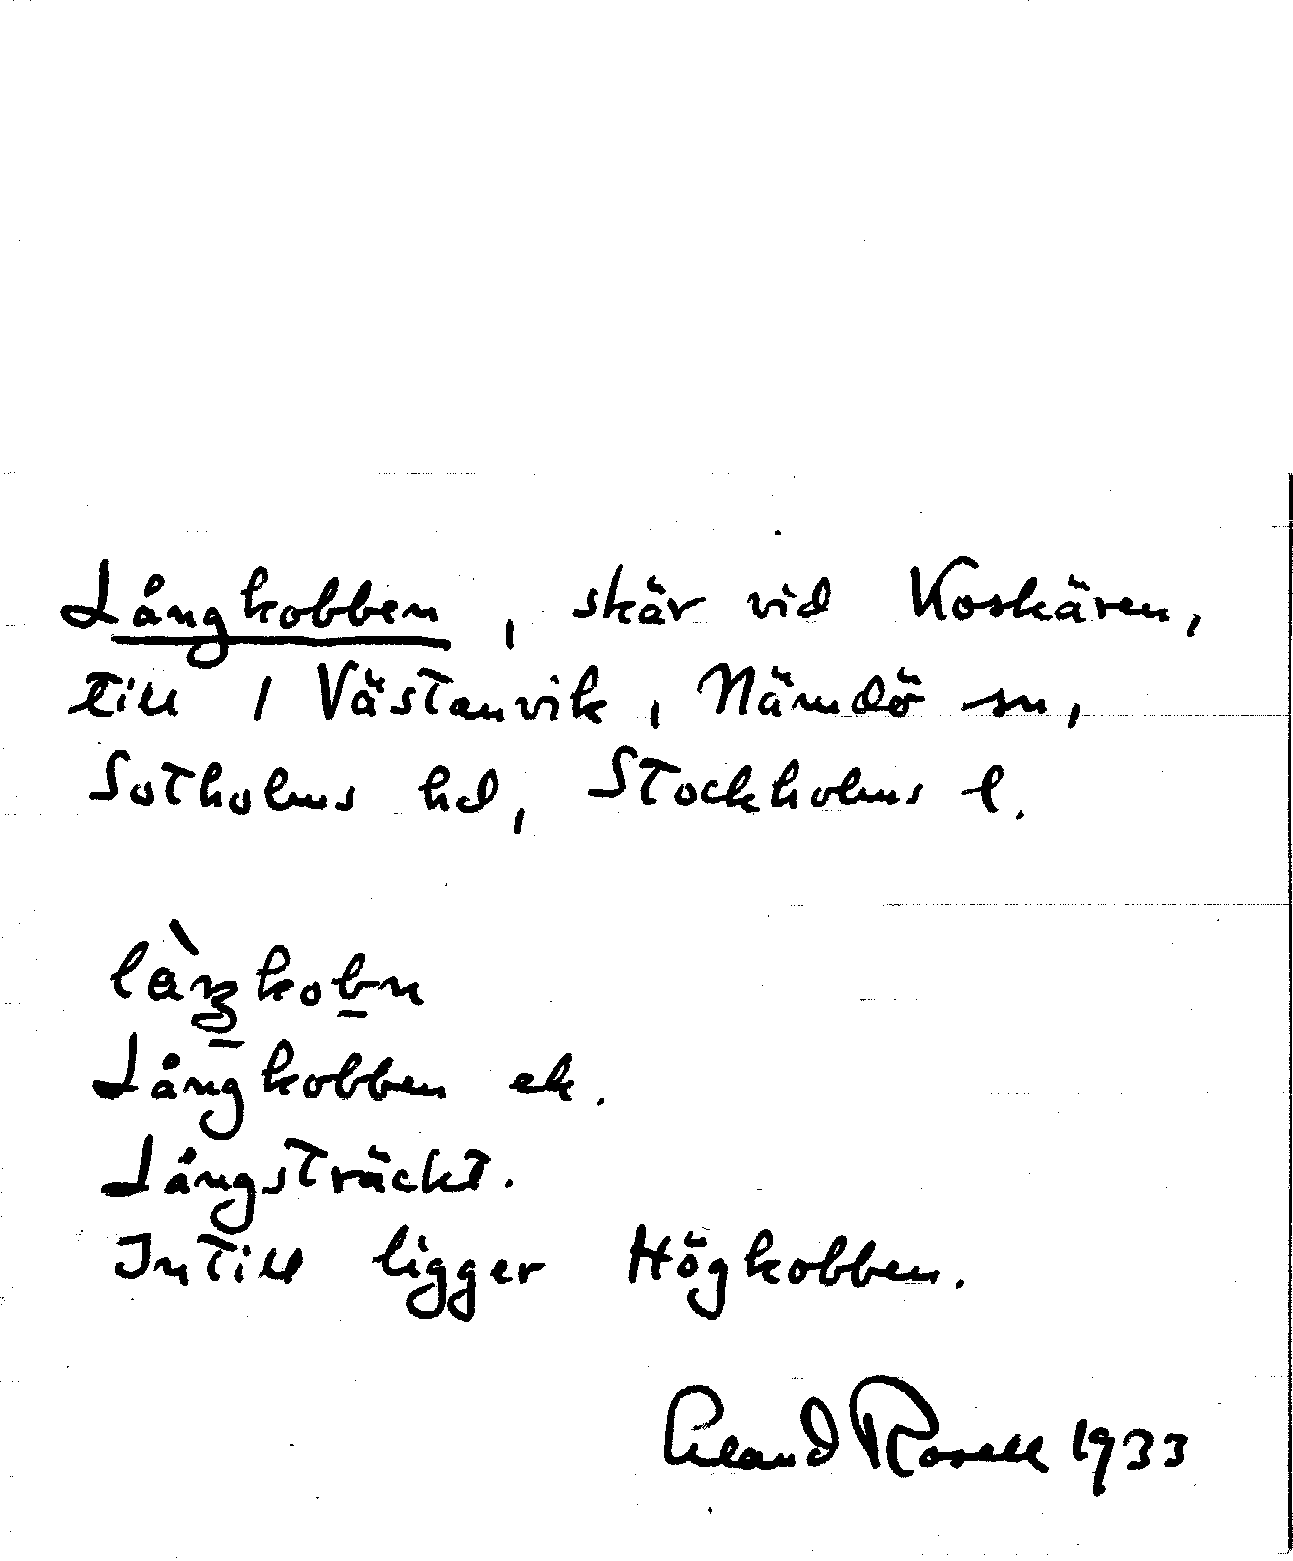 Långkobben, skär vid Koskären,
till 1 Västanvik, Nämdö sn,
Sotholms hd, Stockholms l.
làŋkobn
Långkobben ek.
Långsträckt.
Intill ligger Högkobben.
Erland Rosell 1933